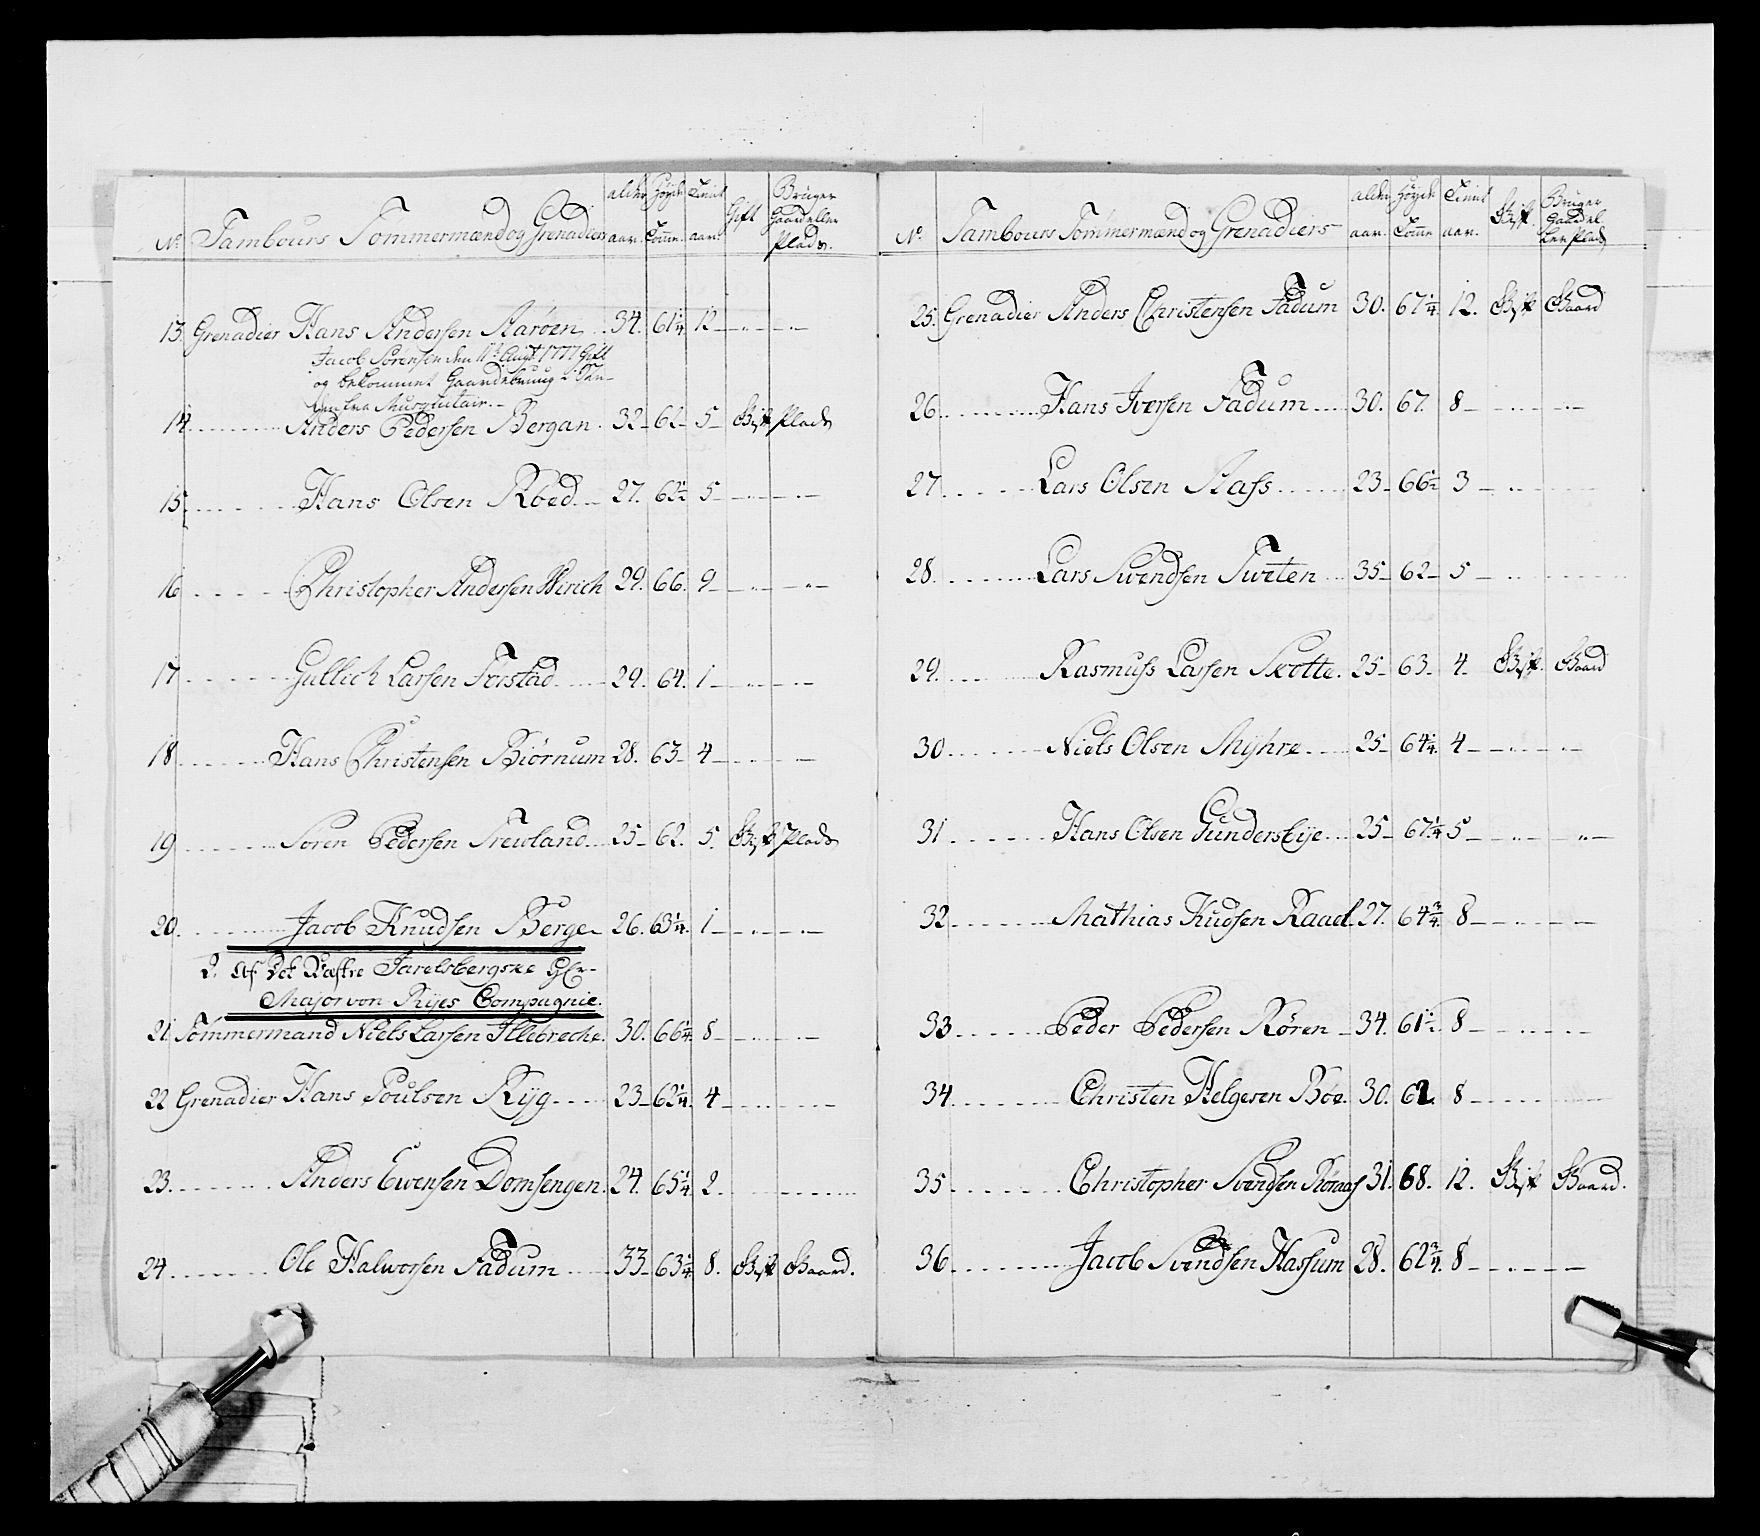 No Tambours Tømmermænd og Grenadiers alder aar. Høyde Tomr. Tient aar. Gift Bruger Gaard eller Plads.
13. Grenadier Hans Andersen Aarøen 34. 61 1/4 12
Jacob Sørensen den 11te Augst 1777 Gift
og bekommet Gaardebrug i Ste-
den fra Musquitair.
14 Anders Pedersen Bergan 32 62 5 Gift Plads
15 Hans Olsen Røed 27. 62 1/2 5
16 Christopher Andersen Wirich 29. 66. 9
17 Gullich Larsen Forstad 29. 64. 1
18 Hans Christensen Biørnum 28. 63 4
19 Søren Pedersen Trewland 25 62. 5. Gift Plads
20. Jacob Knudsen Berge 26. 63 1/4. 1
2. Af Det Wæstre Jarelsbergske Hr-
Major von Rÿes Compagnie.
21. Tømmermand Niels Larsen Illebreche. 30. 66 1/4. 8
22 Grenadier Hans Poulsen Rÿg 23 62 1/4. 4
23. Anders Ewensen Domsengen. 24. 65 1/4 2.
24. Ole Halworsen Fadum 33 63 1/4 8. Gift Gaard.
No. Tambours Tømmermænd og Grenadiers alder aar. Høyde Tomr Tient aar. Gift. Bruger Gaard eller Plads
25. Grenadier Anders Christensen Fadum 30. 67 1/4. 12. Gift Gaard
26. Hans Iversen Fadum 30. 67. 8
27. Lars Olsen Aass 23 66 1/2 3
28. Lars Svendsen Tveten 35 62 5
29. Rasmuss Larsen Skotte. 25 63. 4. Gift. Gaard
30. Niels Olsen Mÿhre 25 64 1/4. 4
31. Hans Olsen Gunderseÿe 25 67 1/4 5
32. Mathias Kudsen Raad. 27. 64 3/4 8
33. Peder Pedersen Røren 34. 61 1/2. 8
34. Christen Helgesen Bøe. 30. 62. 8
35. Christopher Svendsen Røraas 31. 68. 12. Gift Gaard.
36. Jacob Svendsen Hassum 28. 62 3/4. 8